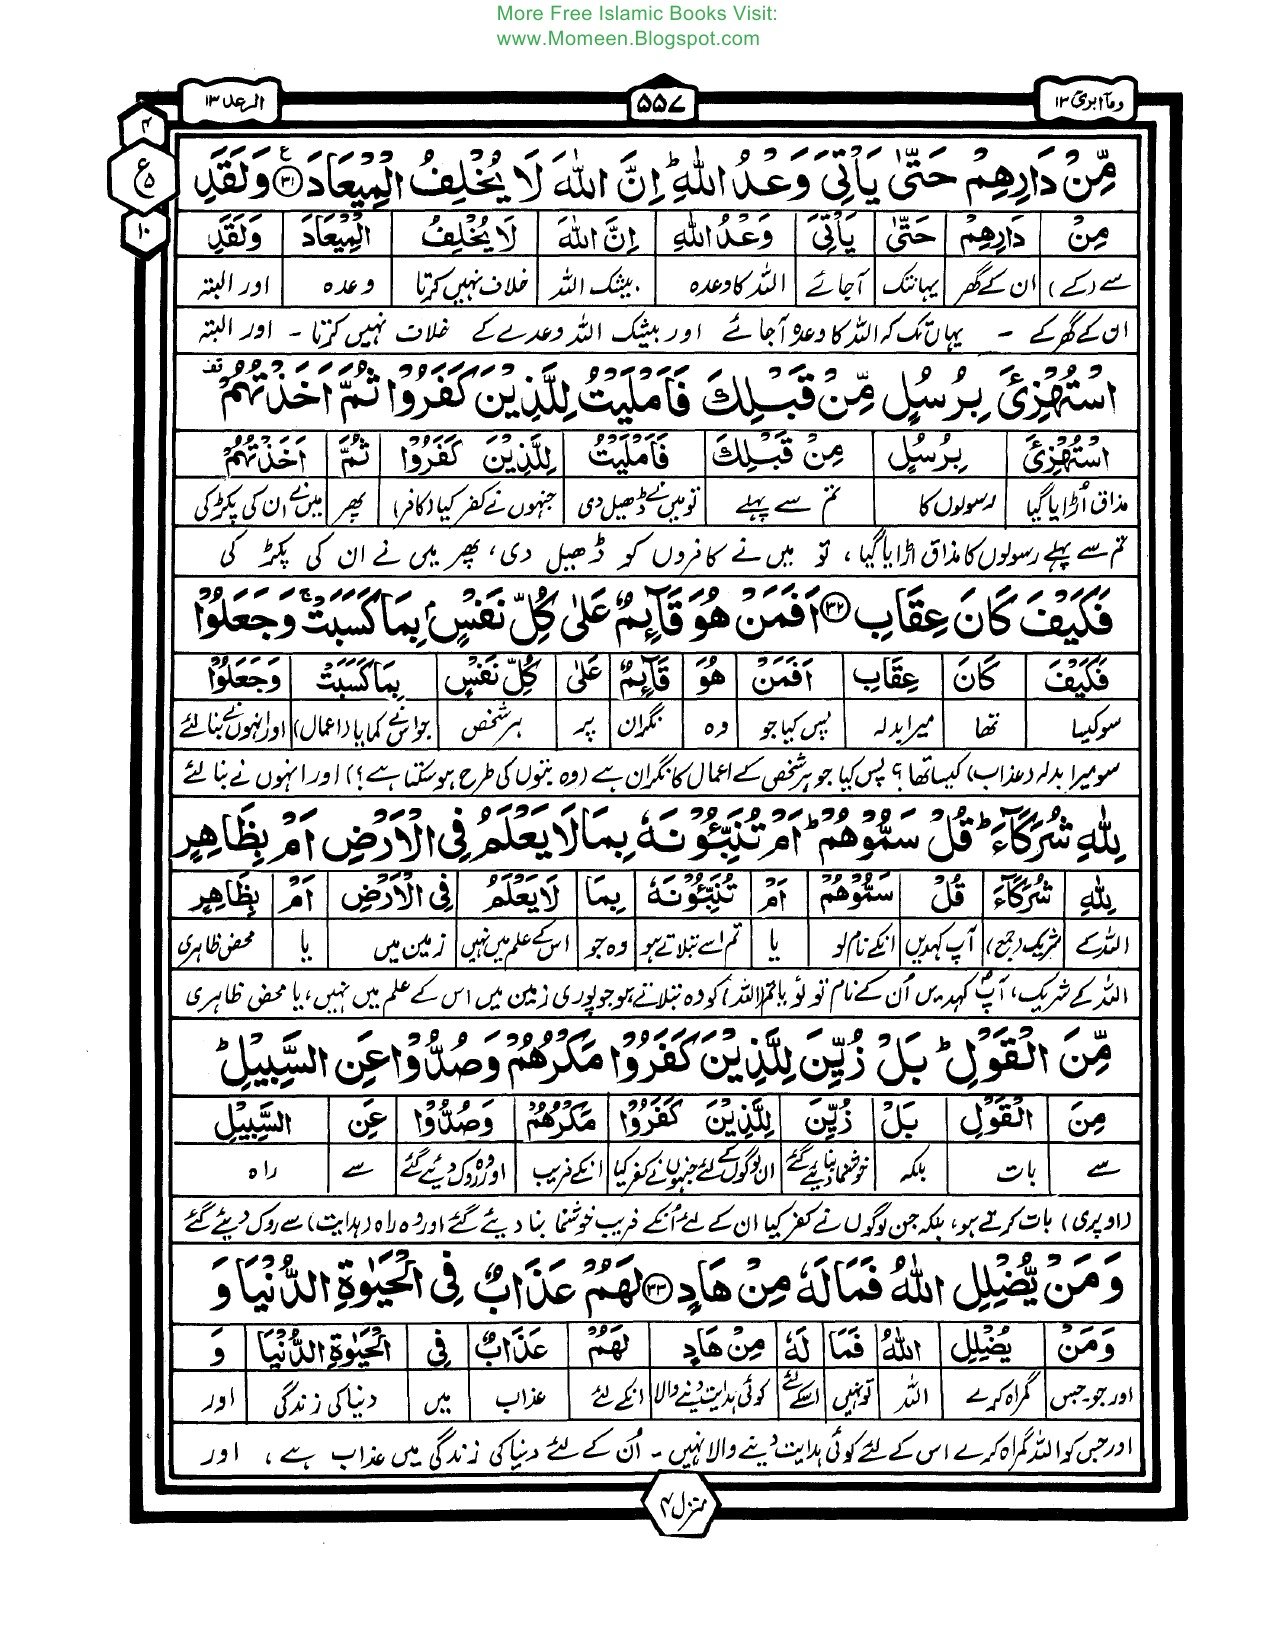 More Free Islamic Books Visit:
www.Momeen.Blogspot.com
ومآ ابرئ ۱۳
۵۵۷
الرعد ۱۳
۴
ع
۵
۱۰
مِّنْ دَارِهِمْ حَتّٰى يَأْتِيَ وَعْدُ اللّٰهِ ؕ اِنَّ اللّٰهَ لَا يُخْلِفُ الْمِيْعَادَ ۳۱ وَلَقَدِ
مِنْ دَارِهِمْ حَتّٰى يَأْتِيَ وَعْدُ اللّٰهِ اِنَّ اللّٰهَ لَا يُخْلِفُ الْمِيْعَادَ وَلَقَدِ
سے (کے) ان کے گھر یہانتک آجائے اللہ کا وعدہ بیشک اللہ خلاف نہیں کرتا وعدہ اور البتہ
ان کے گھر کے - یہاں تک کہ اللہ کا وعدہ آجائے اور بیشک اللہ وعدے کے خلاف نہیں کرتا - اور البتہ
اسْتُهْزِئَ بِرُسُلٍ مِّنْ قَبْلِكَ فَاَمْلَيْتُ لِلَّذِيْنَ كَفَرُوْا ثُمَّ اَخَذْتُهُمْ
اسْتُهْزِئَ بِرُسُلٍ مِنْ قَبْلِكَ فَاَمْلَيْتُ لِلَّذِيْنَ كَفَرُوْا ثُمَّ اَخَذْتُهُمْ
مذاق اُڑایا گیا رسولوں کا تم سے پہلے تو میں نے ڈھیل دی جنہوں نے کفر کیا (کافر) پھر میں نے ان کی پکڑ کی
تم سے پہلے رسولوں کا مذاق اڑایا گیا، تو میں نے کافروں کو ڈھیل دی، پھر میں نے ان کی پکڑ کی
فَكَيْفَ كَانَ عِقَابِ ۳۲ اَفَمَنْ هُوَ قَآئِمٌ عَلٰى كُلِّ نَفْسٍۭ بِمَا كَسَبَتْ ۚ وَجَعَلُوْا
فَكَيْفَ كَانَ عِقَابِ اَفَمَنْ هُوَ قَآئِمٌ عَلٰى كُلِّ نَفْسٍ بِمَا كَسَبَتْ وَجَعَلُوْا
سو کیسا تھا میرا بدلہ پس کیا جو وہ نگران پر ہر شخص جو اس نے کمایا (اعمال) اور انہوں نے بنا لئے
سو میرا بدلہ (عذاب) کیسا تھا؟ پس کیا جو ہر شخص کے اعمال کا نگران ہے (وہ بتوں کی طرح ہو سکتا ہے؟) اور انہوں نے بنا لئے
لِلّٰهِ شُرَكَآءَ ؕ قُلْ سَمُّوْهُمْ ؕ اَمْ تُنَبِّئُوْنَهٗ بِمَا لَا يَعْلَمُ فِي الْاَرْضِ اَمْ بِظَاهِرٍ
لِلّٰهِ شُرَكَآءَ قُلْ سَمُّوْهُمْ اَمْ تُنَبِّئُوْنَهٗ بِمَا لَا يَعْلَمُ فِي الْاَرْضِ اَمْ بِظَاهِرٍ
اللہ کے شریک (جمع) آپ کہدیں انکے نام لو یا تم اسے بتلاتے ہو وہ جو اس کے علم میں نہیں زمین میں یا محض ظاہری
اللہ کے شریک، آپ کہدیں اُن کے نام تو لو یا تم (اللہ) کو وہ بتلاتے ہو جو پوری زمین میں اس کے علم میں نہیں، یا محض ظاہری
مِّنَ الْقَوْلِ ؕ بَلْ زُيِّنَ لِلَّذِيْنَ كَفَرُوْا مَكْرُهُمْ وَصُدُّوْا عَنِ السَّبِيْلِ ؕ
مِنَ الْقَوْلِ بَلْ زُيِّنَ لِلَّذِيْنَ كَفَرُوْا مَكْرُهُمْ وَصُدُّوْا عَنِ السَّبِيْلِ
سے بات بلکہ خوشنما بنا دیئے گئے ان لوگوں کے لئے جنہوں نے کفر کیا انکے فریب اور وہ روک دیئے گئے سے راہ
(اوپری) بات کرتے ہو، بلکہ جن لوگوں نے کفر کیا ان کے لئے اُنکے فریب خوشنما بنا دیئے گئے اور وہ راہ (ہدایت) سے روک دیئے گئے
وَمَنْ يُّضْلِلِ اللّٰهُ فَمَا لَهٗ مِنْ هَادٍ ۳۳ لَهُمْ عَذَابٌ فِي الْحَيٰوةِ الدُّنْيَا وَ
وَمَنْ يُضْلِلِ اللّٰهُ فَمَا لَهٗ مِنْ هَادٍ لَهُمْ عَذَابٌ فِي الْحَيٰوةِ الدُّنْيَا وَ
اور جو-جس گمراہ کرے اللہ تو نہیں اسکے لئے کوئی ہدایت دینے والا انکے لئے عذاب میں دنیا کی زندگی اور
اور جس کو اللہ گمراہ کرے اس کے لئے کوئی ہدایت دینے والا نہیں - اُن کے لئے دنیا کی زندگی میں عذاب ہے، اور
منزل ۴